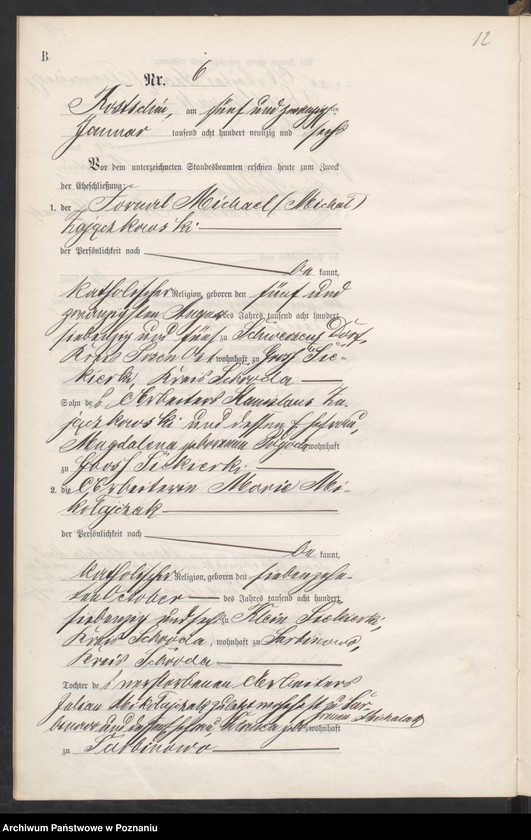 12
B.
Nr. 6
Kostschin, am fünf und zwanzigsten
Januar tausend acht hundert neunzig und sechs
Vor dem unterzeichneten Standesbeamten erschien heute zum Zweck
der Eheschließung:
1. der Michael (Michał)
Zajączkowski
der Persönlichkeit nach
be kannt,
katholischer Religion, geboren den fünf und
zwanzigsten August des Jahres tausend acht hundert
siebenzig und fünf zu Schwersenz Dorf,
Kreis Posen Ost, wohnhaft zu Groß Sie-
kierki, Kreis Schroda
Sohn des Arbeiters Stanislaus Za-
jączkowski und dessen Ehefrau,
Magdalena geborenen wohnhaft
zu Groß Siekierki
2. die Arbeiterin Marie Mi-
kołajczak
der Persönlichkeit nach
be kannt,
katholischer Religion, geboren den siebenzehn-
ten October des Jahres tausend acht hundert
siebenzig und sechs zu Klein Siekierki,
Kreis Schroda, wohnhaft zu Sarbinowo,
Kreis Schroda
Tochter des verstorbenen Arbeiters
Julian Mikołajczak zuletzt wohnhaft zu Sar-
binowo und dessen Ehefrau geborenen Michalak wohnhaft
zu Sarbinowo
Archiwum Państwowe w Poznaniu